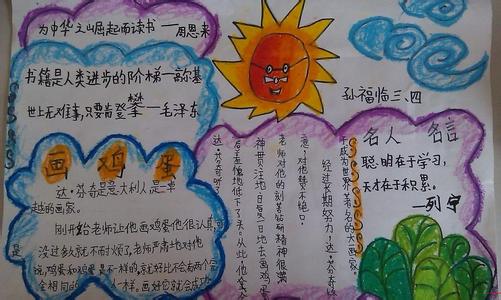 为中华之崛起而读书 —周恩来
书籍是人类进步的阶梯—高尔基
世上无难事,只要肯登攀—毛泽东
孙福临三、四
画鸡蛋
达·芬奇是意大利人是一
越的画家。
刚开始老师让他画鸡蛋他很认真可
没过多久就不耐烦了,老师严肃地对他
说,鸡蛋和鸡蛋是不一样的,就好比不会有两个完
全相同的 人一样。画好它就会成功
达·芬奇听了
后羞愧地低下了头。从此,他拿
神贯注地日复一日地去画鸡蛋
老师对他的刻苦钻研精神很满
意,对他赞不绝口。
经过长期努力,达·芬奇终
于成为世界著名的大画家。
名人 名言
聪明在于学习,
天才在于积累。
—列宁